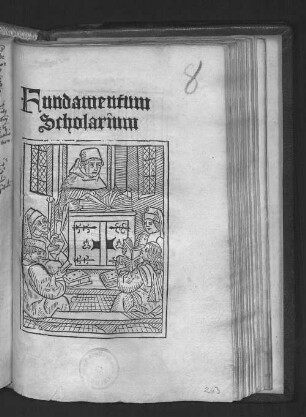 8
Fundamentum
Scholarium
263